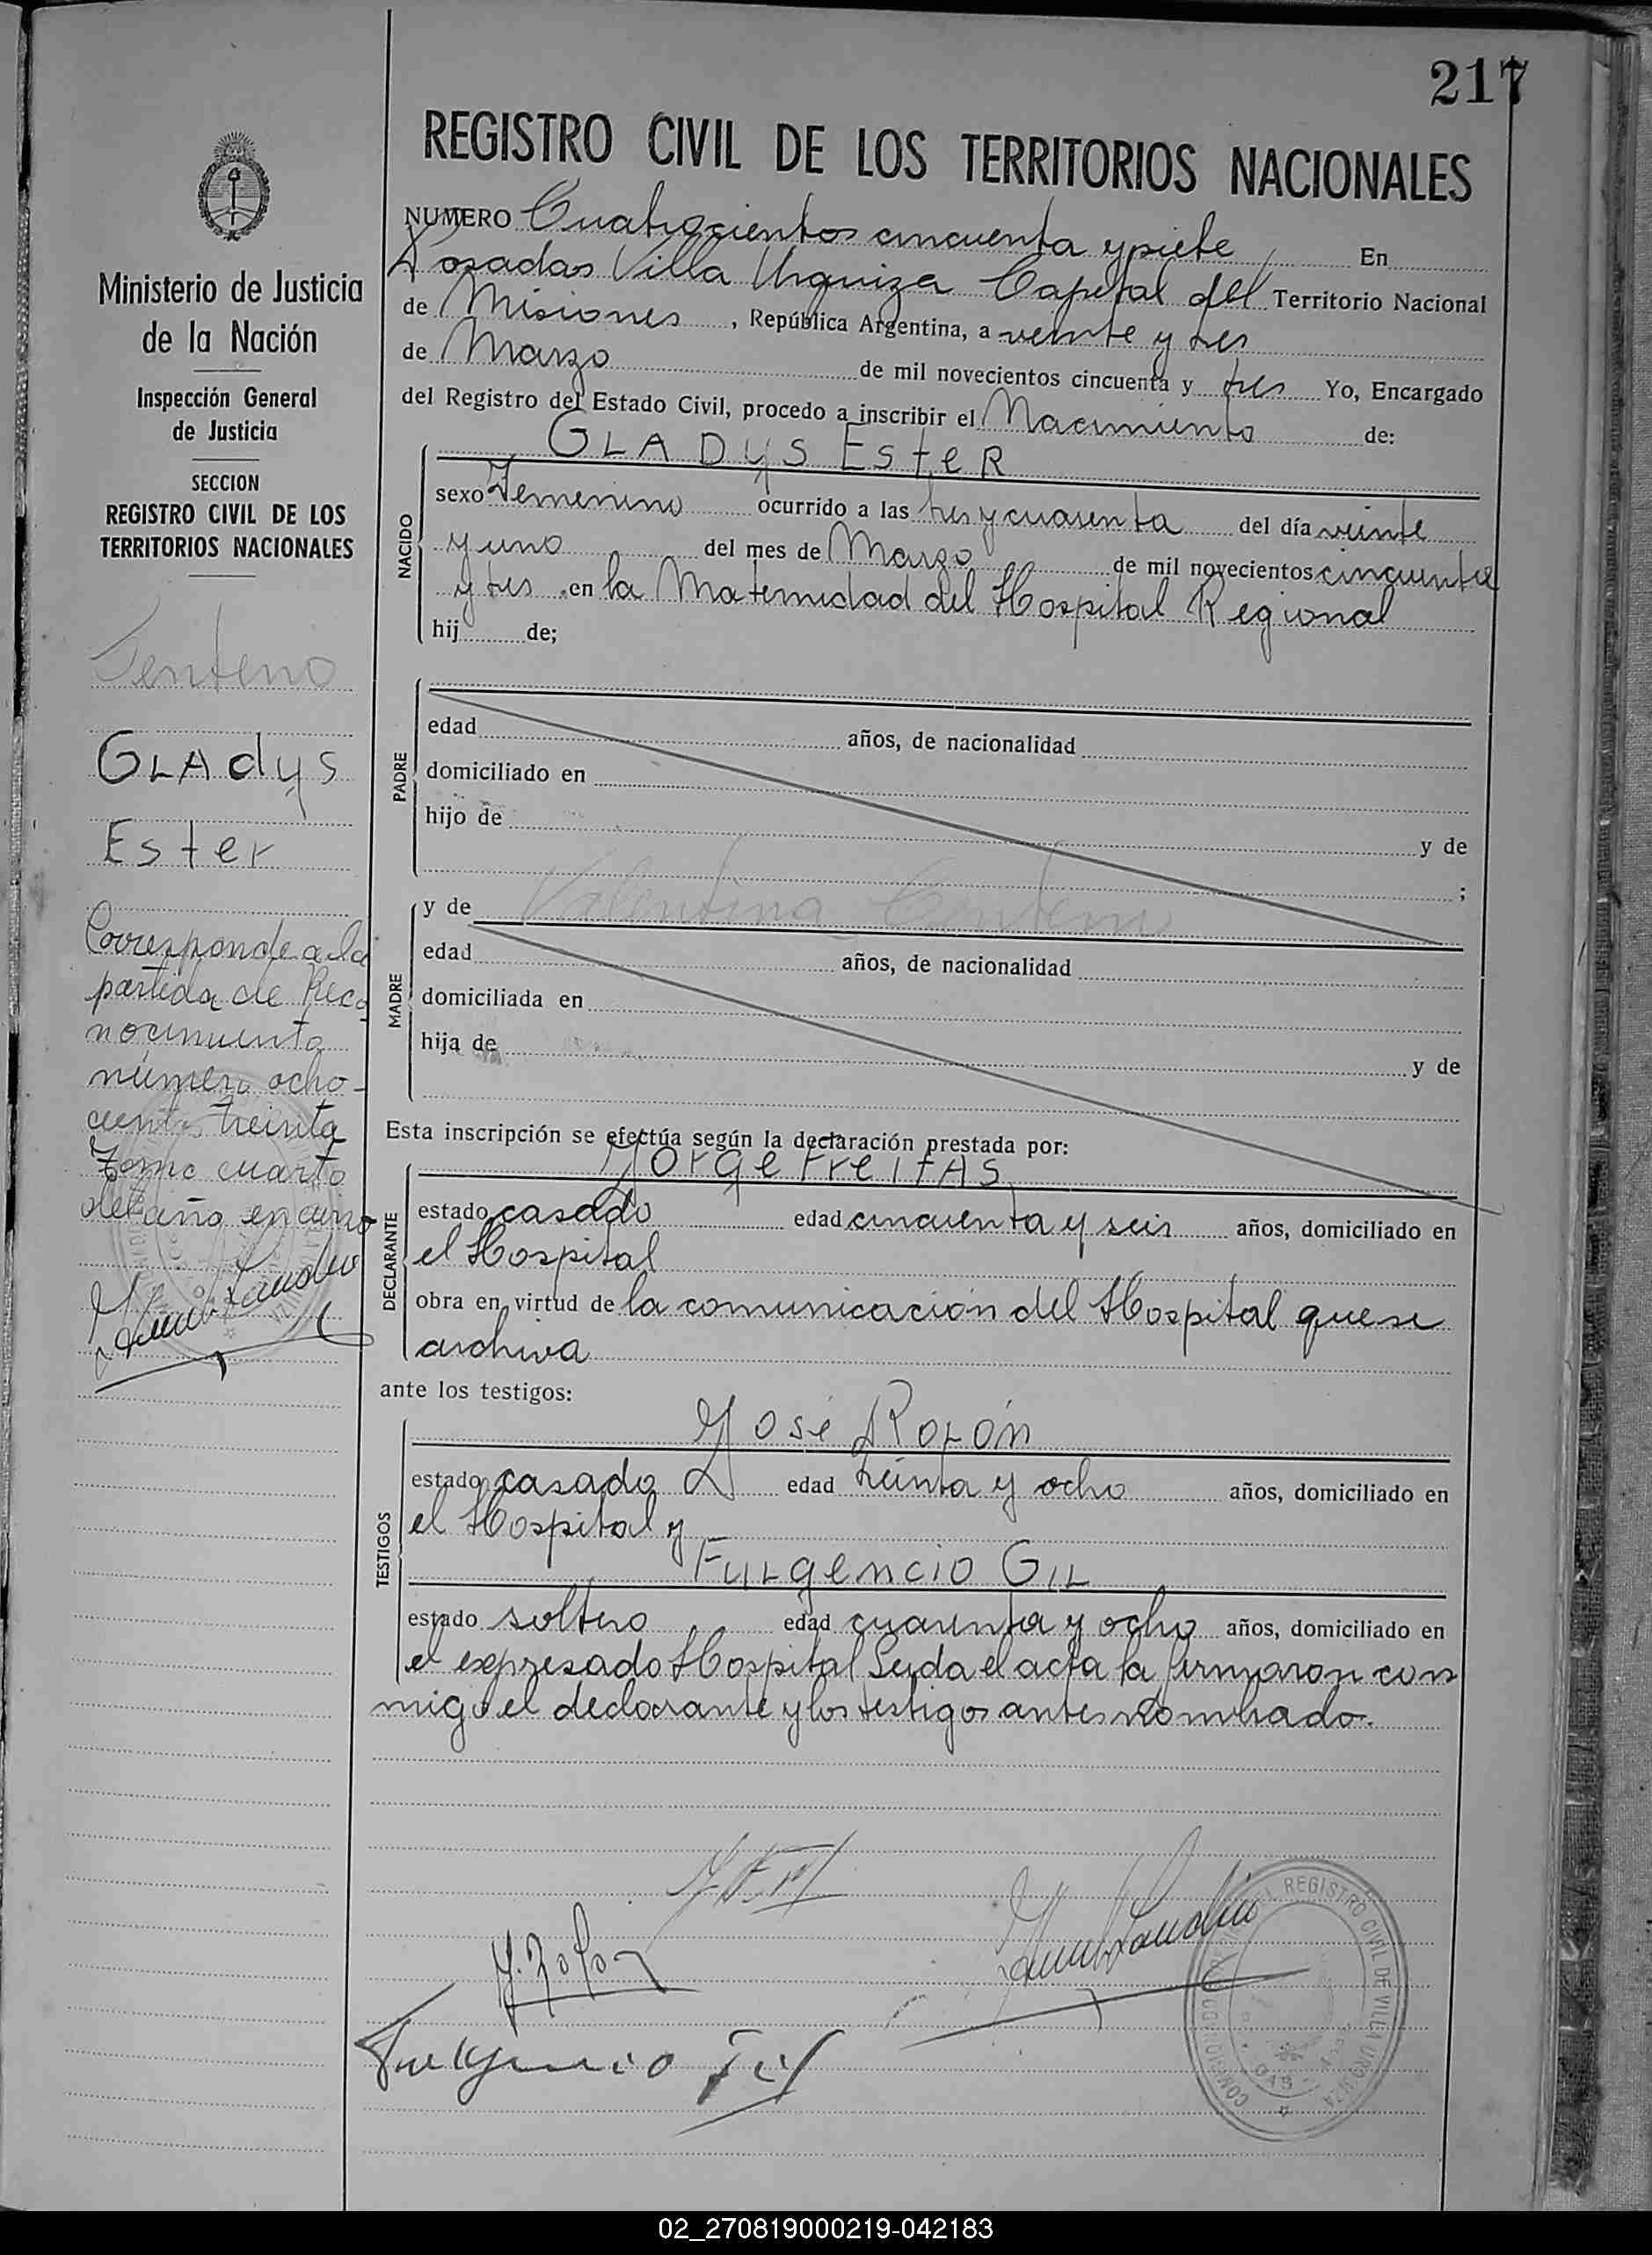 217
REGISTRO CIVIL DE LOS TERRITORIOS NACIONALES
NUMERO Cuatrocientos cincuenta y siete En
Posadas Villa Urquiza Capital del Territorio Nacional
de Misiones, República Argentina, a veinte y tres
de Marzo de mil novecientos cincuenta y tres Yo, Encargado
del Registro del Estado Civil, procedo a inscribir el Nacimiento de:
GLADYS EsteR
NACIDO
sexo Femenino ocurrido a las tres y cuarenta del día veinte
y uno del mes de Marzo de mil novecientos cincuenta
y tres en la Maternidad del Hospital Regional
hij de;
PADRE
edad años, de nacionalidad
domiciliado en
hijo de y de
;
MADRE
y de Valentina Centeno
edad años, de nacionalidad
domiciliada en
hija de y de
Esta inscripción se efectúa según la declaración prestada por:
DECLARANTE
Jorge FreitAs
estado casado edad cincuenta y seis años, domiciliado en
el Hospital
obra en virtud de la comunicación del Hospital que se
archiva
ante los testigos:
TESTIGOS
José ROLÓN
estado casado edad treinta y ocho años, domiciliado en
el Hospital y
FULgencio GIL
estado soltero edad cuarenta y ocho años, domiciliado en
el expresado Hospital Leida el acta la firmaron con
migo el declarante y los testigos antes nombrado.
J. Rolon
Fulgencio Gil
REGISTRO CIVIL DE VILLA URQUIZA
Ministerio de Justicia
de la Nación
Inspección General
de Justicia
SECCION
REGISTRO CIVIL DE LOS
TERRITORIOS NACIONALES
Senteno
GLAdys
Ester
Corresponde a la
partida de Reco
nocimiento
número ocho-
cientos treinta
Tomo cuarto
del año en curso
02_270819000219-042183